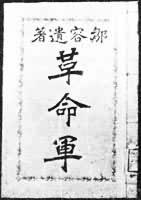 鄒容遺著
革命軍